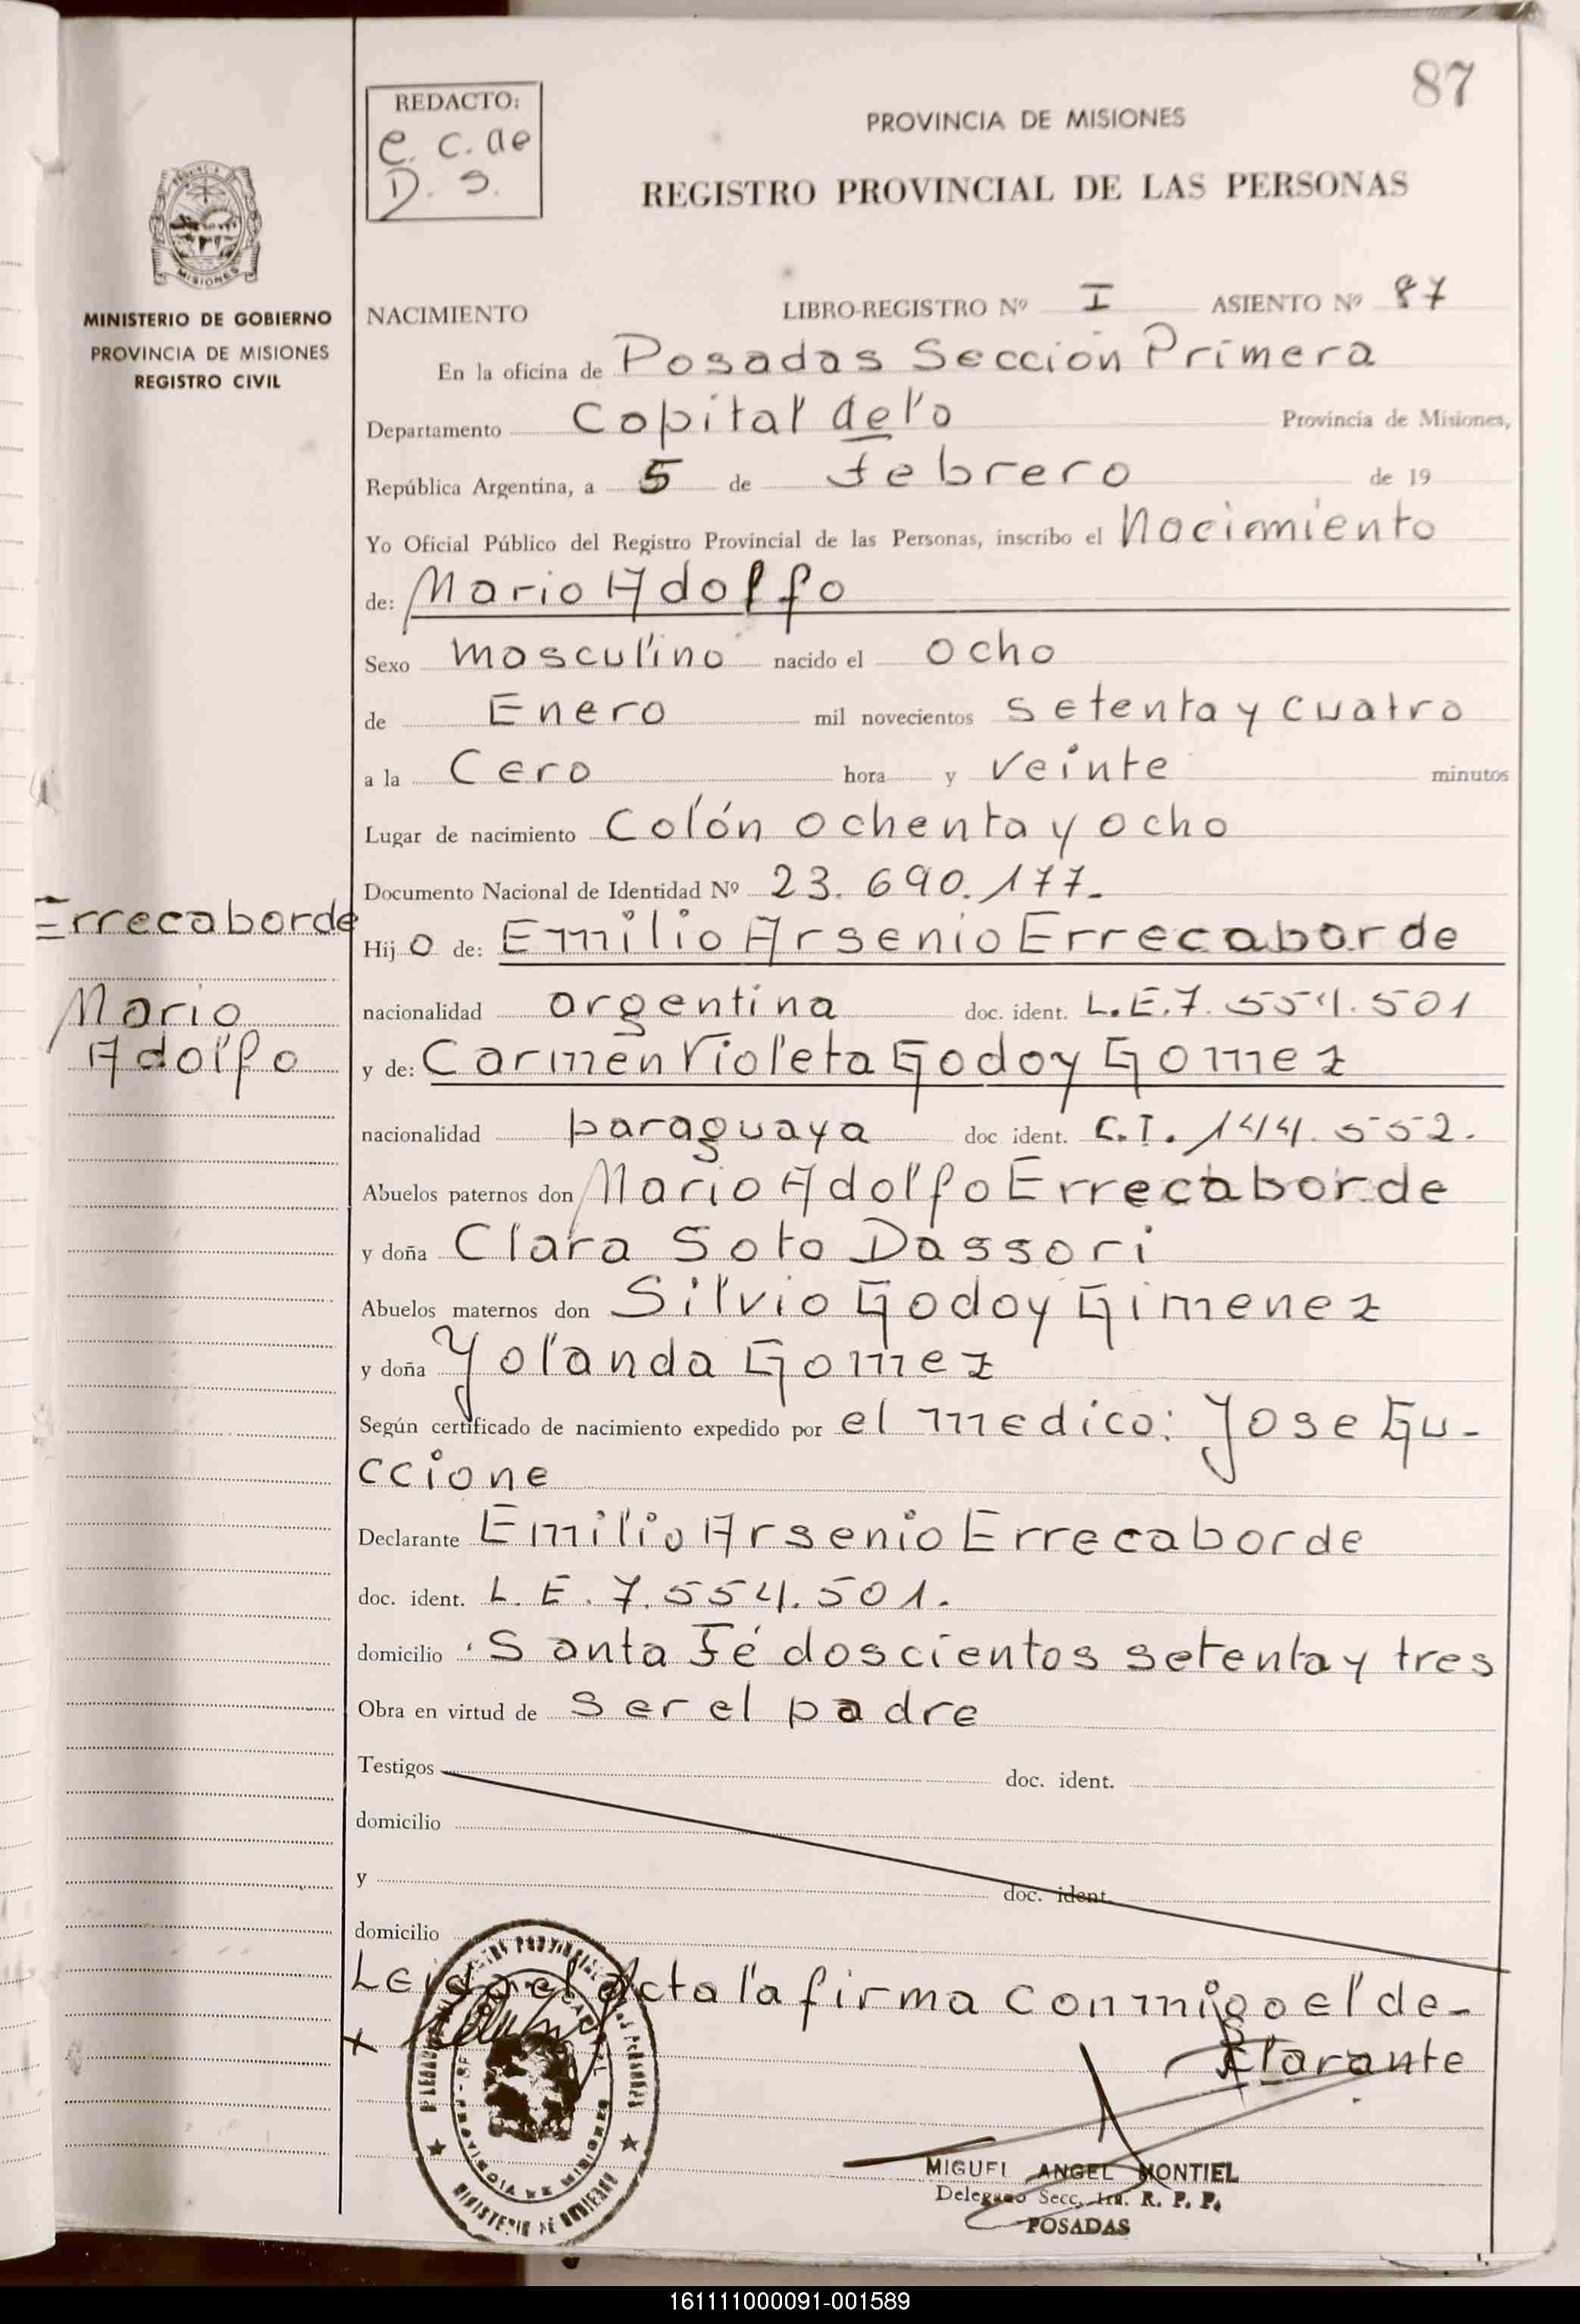 87
REDACTO:
C. C. de
D. S.
PROVINCIA DE MISIONES
REGISTRO PROVINCIAL DE LAS PERSONAS
MISIONES
MINISTERIO DE GOBIERNO
PROVINCIA DE MISIONES
REGISTRO CIVIL
NACIMIENTO LIBRO-REGISTRO Nº I ASIENTO Nº 87
En la oficina de Posadas Sección Primera
Departamento Capital de la Provincia de Misiones,
República Argentina, a 5 de Febrero de 19
Yo Oficial Público del Registro Provincial de las Personas, inscribo el Nacimiento
de: Mario Adolfo
Sexo masculino nacido el ocho
de Enero mil novecientos setenta y cuatro
a la Cero hora y veinte minutos
Lugar de nacimiento Colón ochenta y ocho
Documento Nacional de Identidad Nº 23.690.177.
Errecaborde
Mario
Adolfo
Hijo de: Emilio Arsenio Errecaborde
nacionalidad argentina doc. ident. L.E.7.554.501
y de: Carmen Violeta Godoy Gomez
nacionalidad paraguaya doc ident. C.I. 144.552.
Abuelos paternos don Mario Adolfo Errecaborde
y doña Clara Soto Dassori
Abuelos maternos don Silvio Godoy Gimenez
y doña Yolanda Gomez
Según certificado de nacimiento expedido por el medico: Jose Gu-
ccione
Declarante Emilio Arsenio Errecaborde
doc. ident. L.E.7.554.501.
domicilio Santa Fé doscientos setenta y tres
Obra en virtud de ser el padre
Testigos doc. ident.
domicilio
y doc. ident.
domicilio
Leida el acta la firma conmigo el de-
clarante
PROVINCIA DE MISIONES
MINISTERIO DE GOBIERNO
MIGUEL ANGEL MONTIEL
Delegado Secc. 1ra. R. P. P.
POSADAS
161111000091-001589